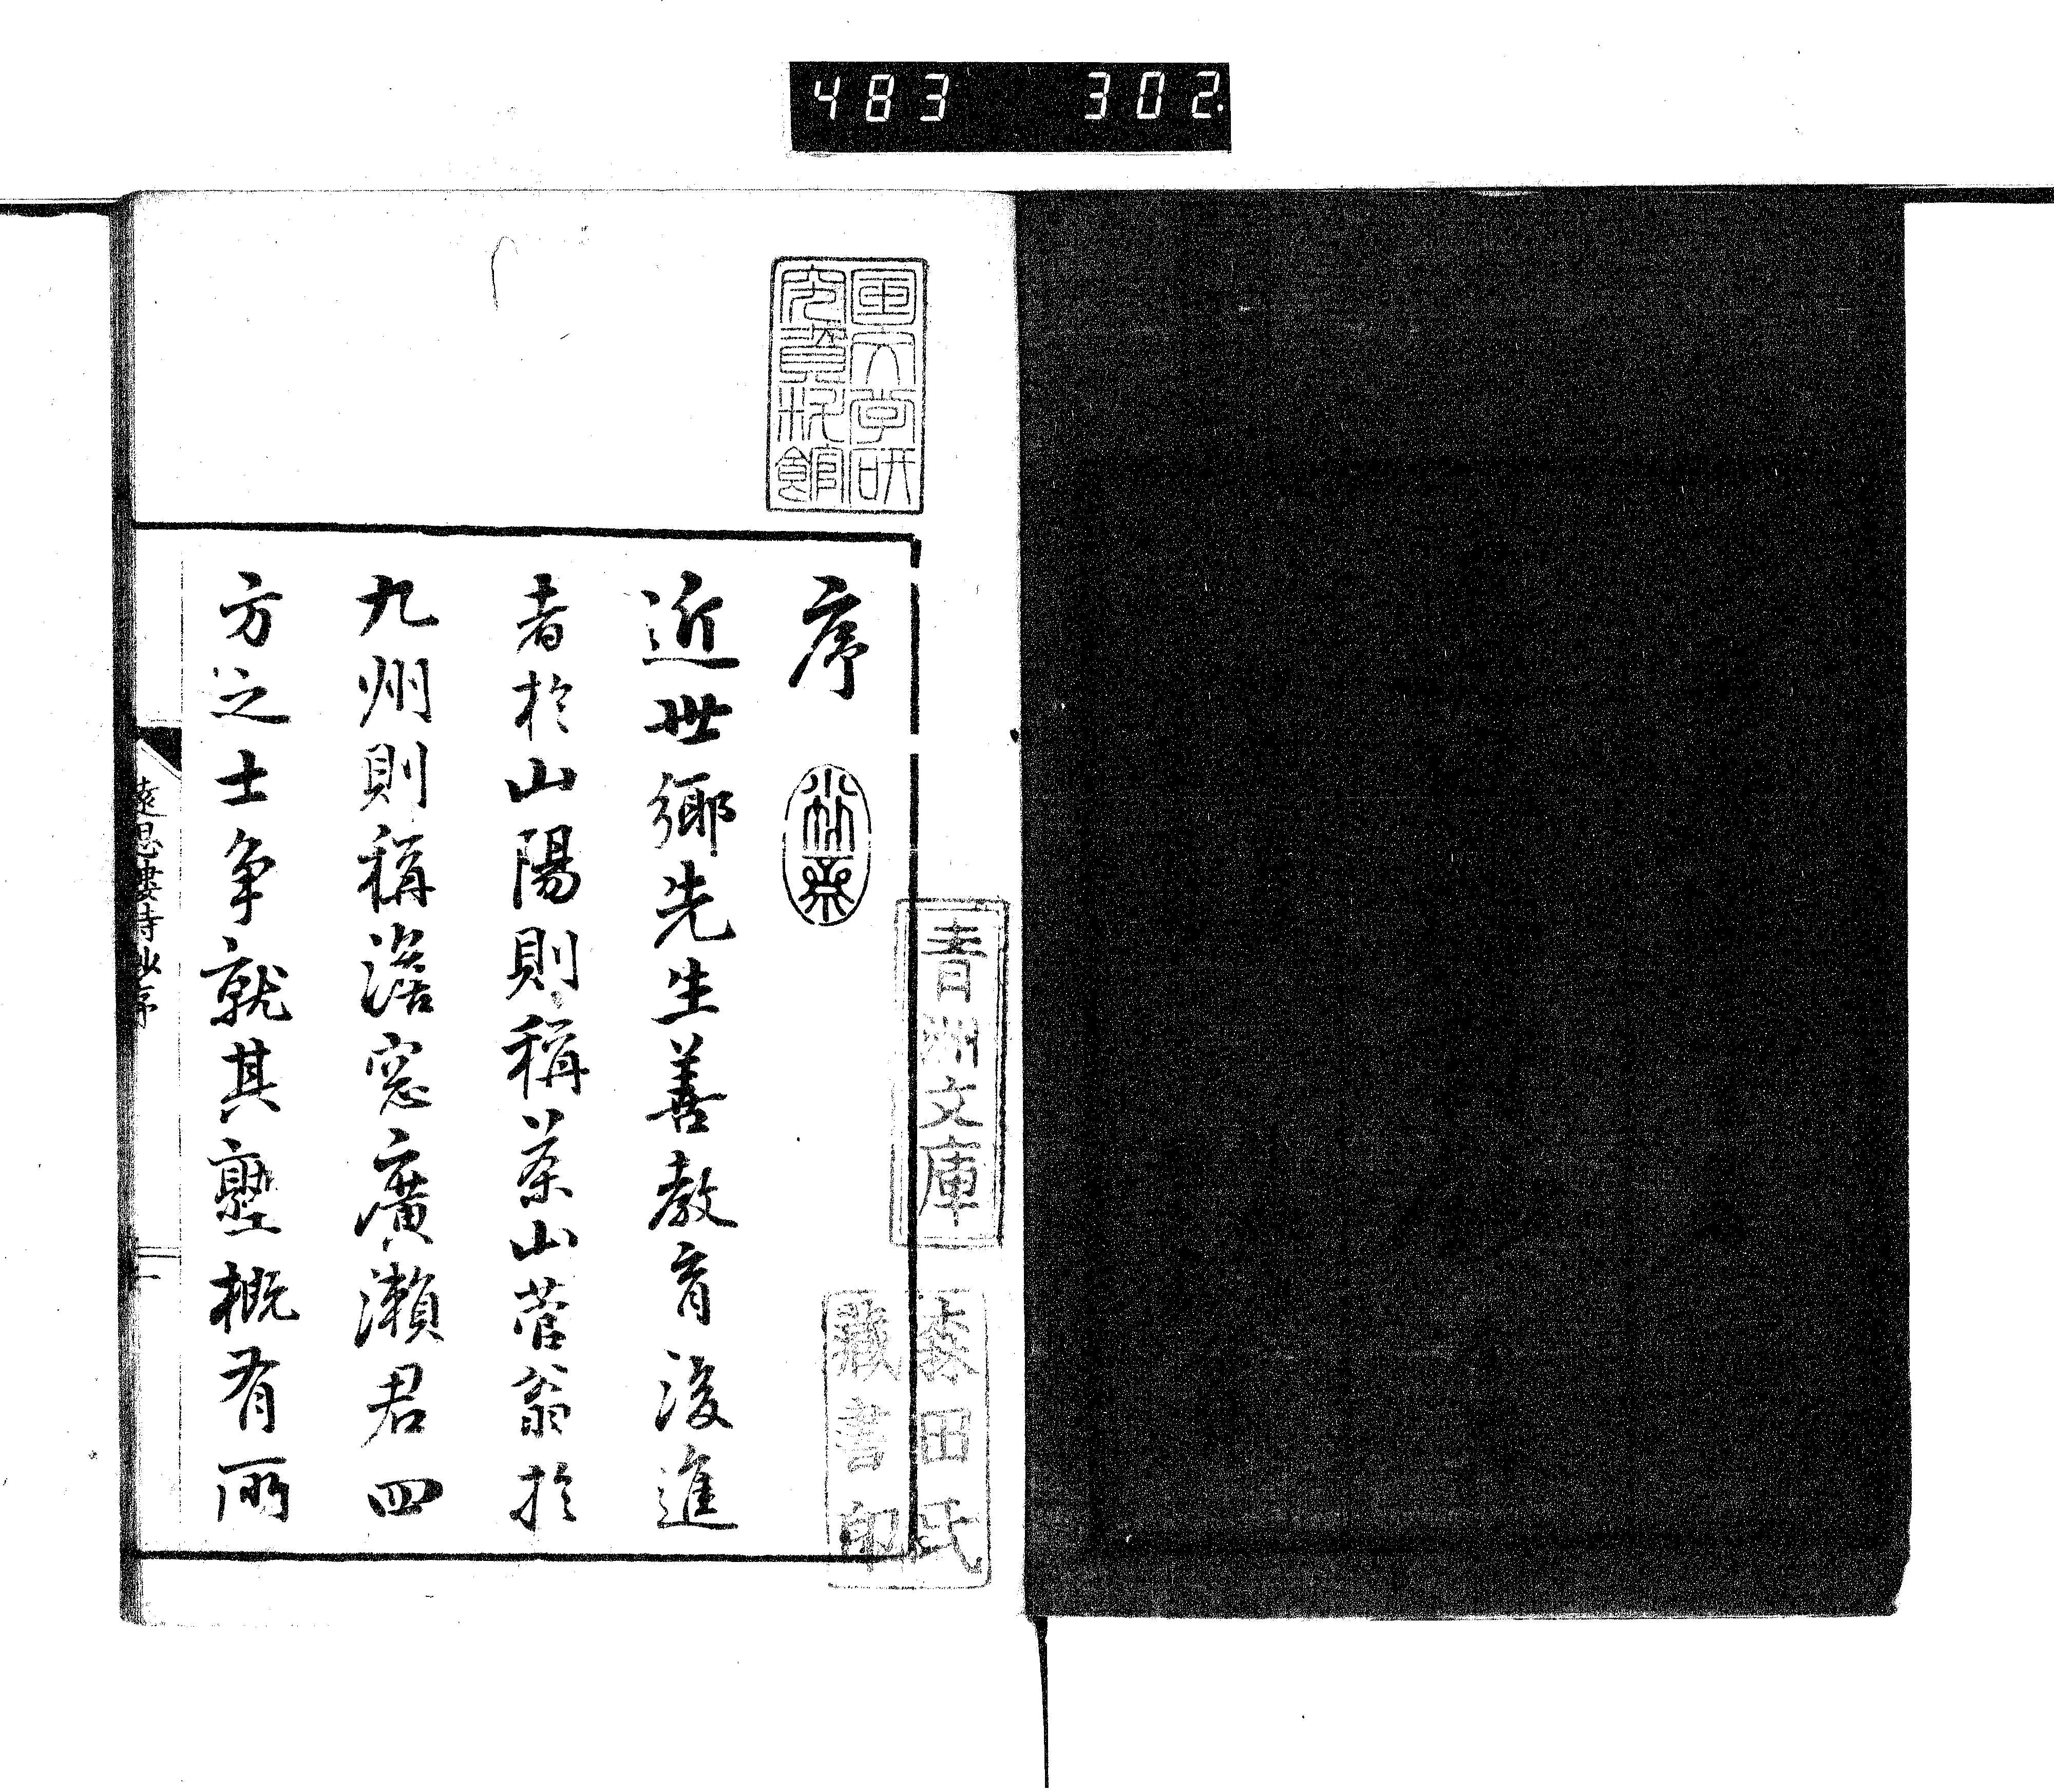 483 302
国文学研
究資料館
序
近世鄉先生善教育後進
者於山陽則稱茶山菅翁於
九州則稱淡窓廣瀨君四
方之士争就其塾概有所
青州文庫
森田氏
蔵書印
遠思樓詩鈔序
一